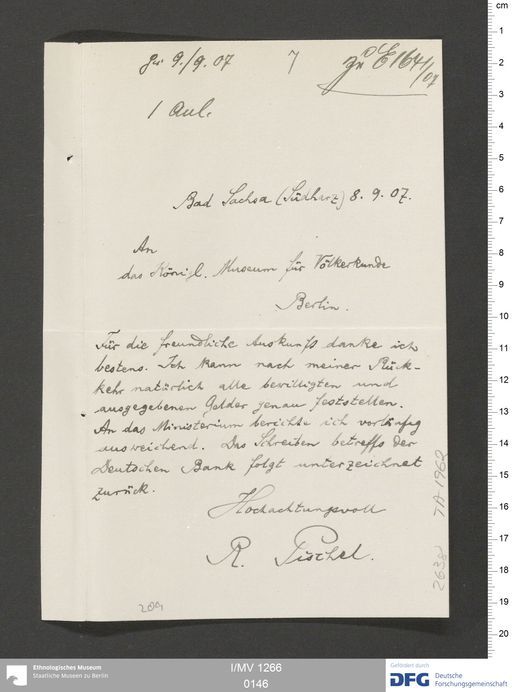 9./9. 07
7
zu E 1641/07
1 Anl.
Bad Sachsa (Südharz) 8. 9. 07.
An
das Königl. Museum für Völkerkunde
Berlin.
Für die freundliche Auskunft danke ich
bestens. Ich kann nach meiner Rück-
kehr natürlich alle bewilligten und
ausgegebenen Gelder genau feststellen.
An das Ministerium berichte ich vorläufig
ausweichend. Das Schreiben betreffs der
Deutschen Bank folgt unterzeichnet
zurück.
Hochachtungsvoll
R. Pischel.
209
cm
1
2
3
4
5
6
7
8
9
10
11
12
13
14
15
16
17
18
19
20
Ethnologisches Museum
Staatliche Museen zu Berlin
I/MV 1266
0146
Gefördert durch
DFG Deutsche
Forschungsgemeinschaft